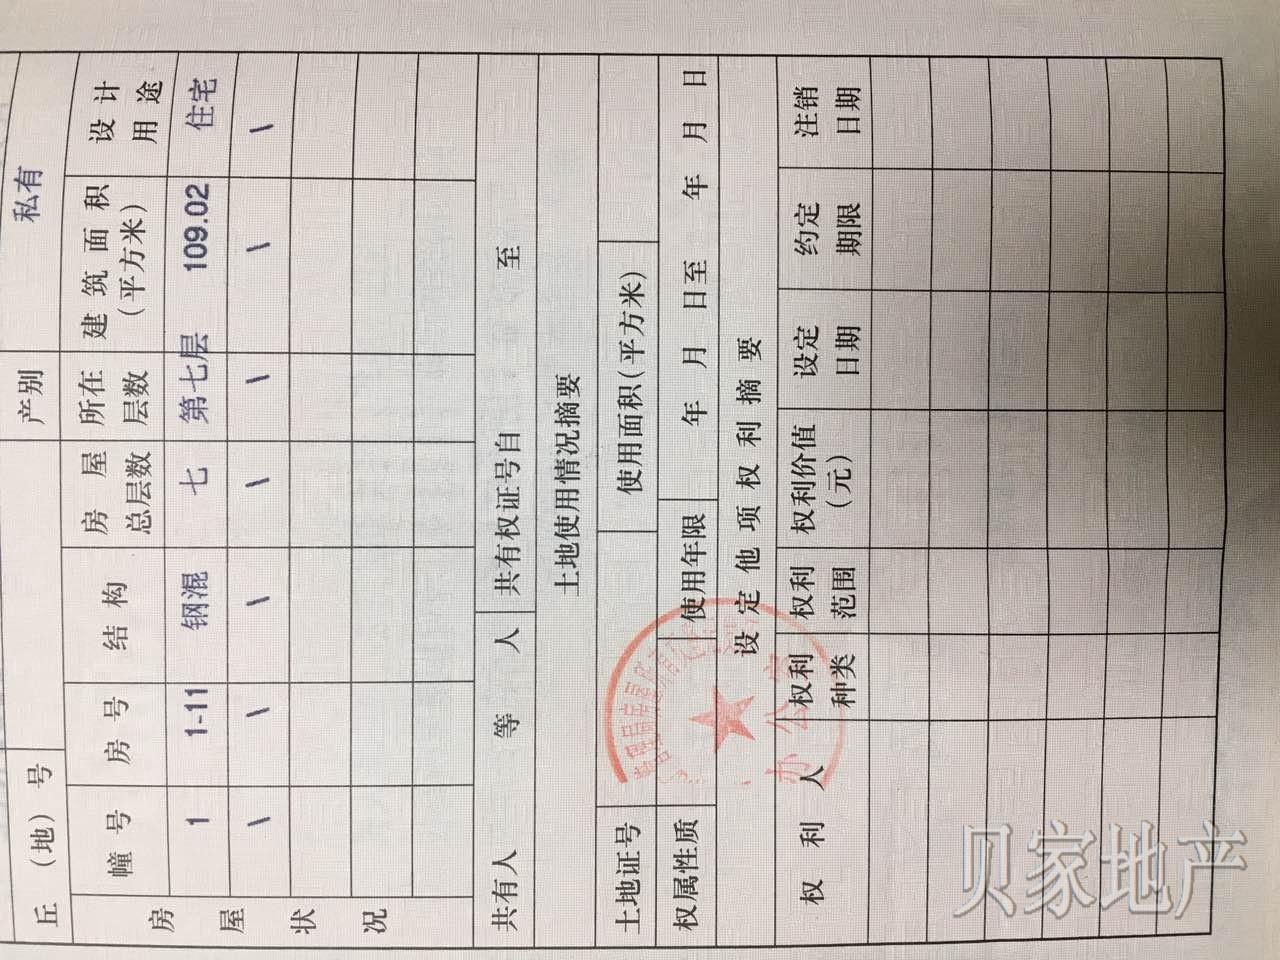 丘（地）号 产别 私有
房屋状况
幢号 房号 结构 房屋总层数 所在层数 建筑面积（平方米） 设计用途
1 1-11 钢混 七 第七层 109.02 住宅
\ \ \ \ \ \ \
共有人 等 人 共有权证号自 至
土地使用情况摘要
土地证号 使用面积（平方米）
权属性质 使用年限 年 月 日至 年 月 日
设定他项权利摘要
权利人 权利种类 权利范围 权利价值（元） 设定日期 约定期限 注销日期
办公室
贝家地产